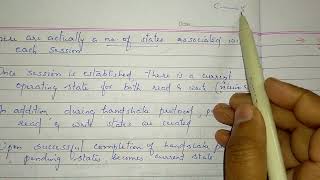 C — S
Date
ere are actually a no of states associated wi
each session
nce session is established There is a current
operating state for both read & write
n addition, during handshake protocol, p
read & write states are created
Upon successful completion of handshake pr
pending states becomes current state